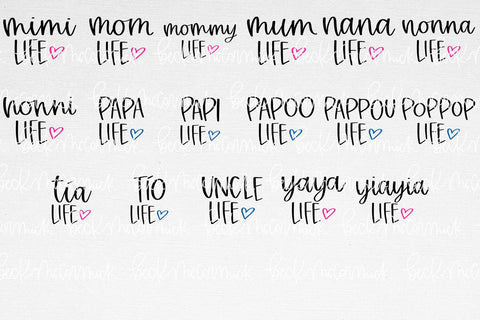 mimi mom mommy mum nana nonna
LIFE LIFE LIFE LIFE LIFE LIFE
nonni PAPA PAPI PAPOO PAPPOU POPPOP
LIFE LIFE LIFE LIFE LIFE LIFE
tia TÍO UNCLE yaya yiayia
LIFE LIFE LIFE LIFE LIFE
beck mccormick beck mccormick beck mccormick